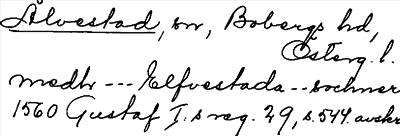 Ålvestad, sn, Bobergs hd,
Österg. l.
medh --- Elfvestada -- sochner
1560 Gustaf I:s reg. 29, s. 544 avskr